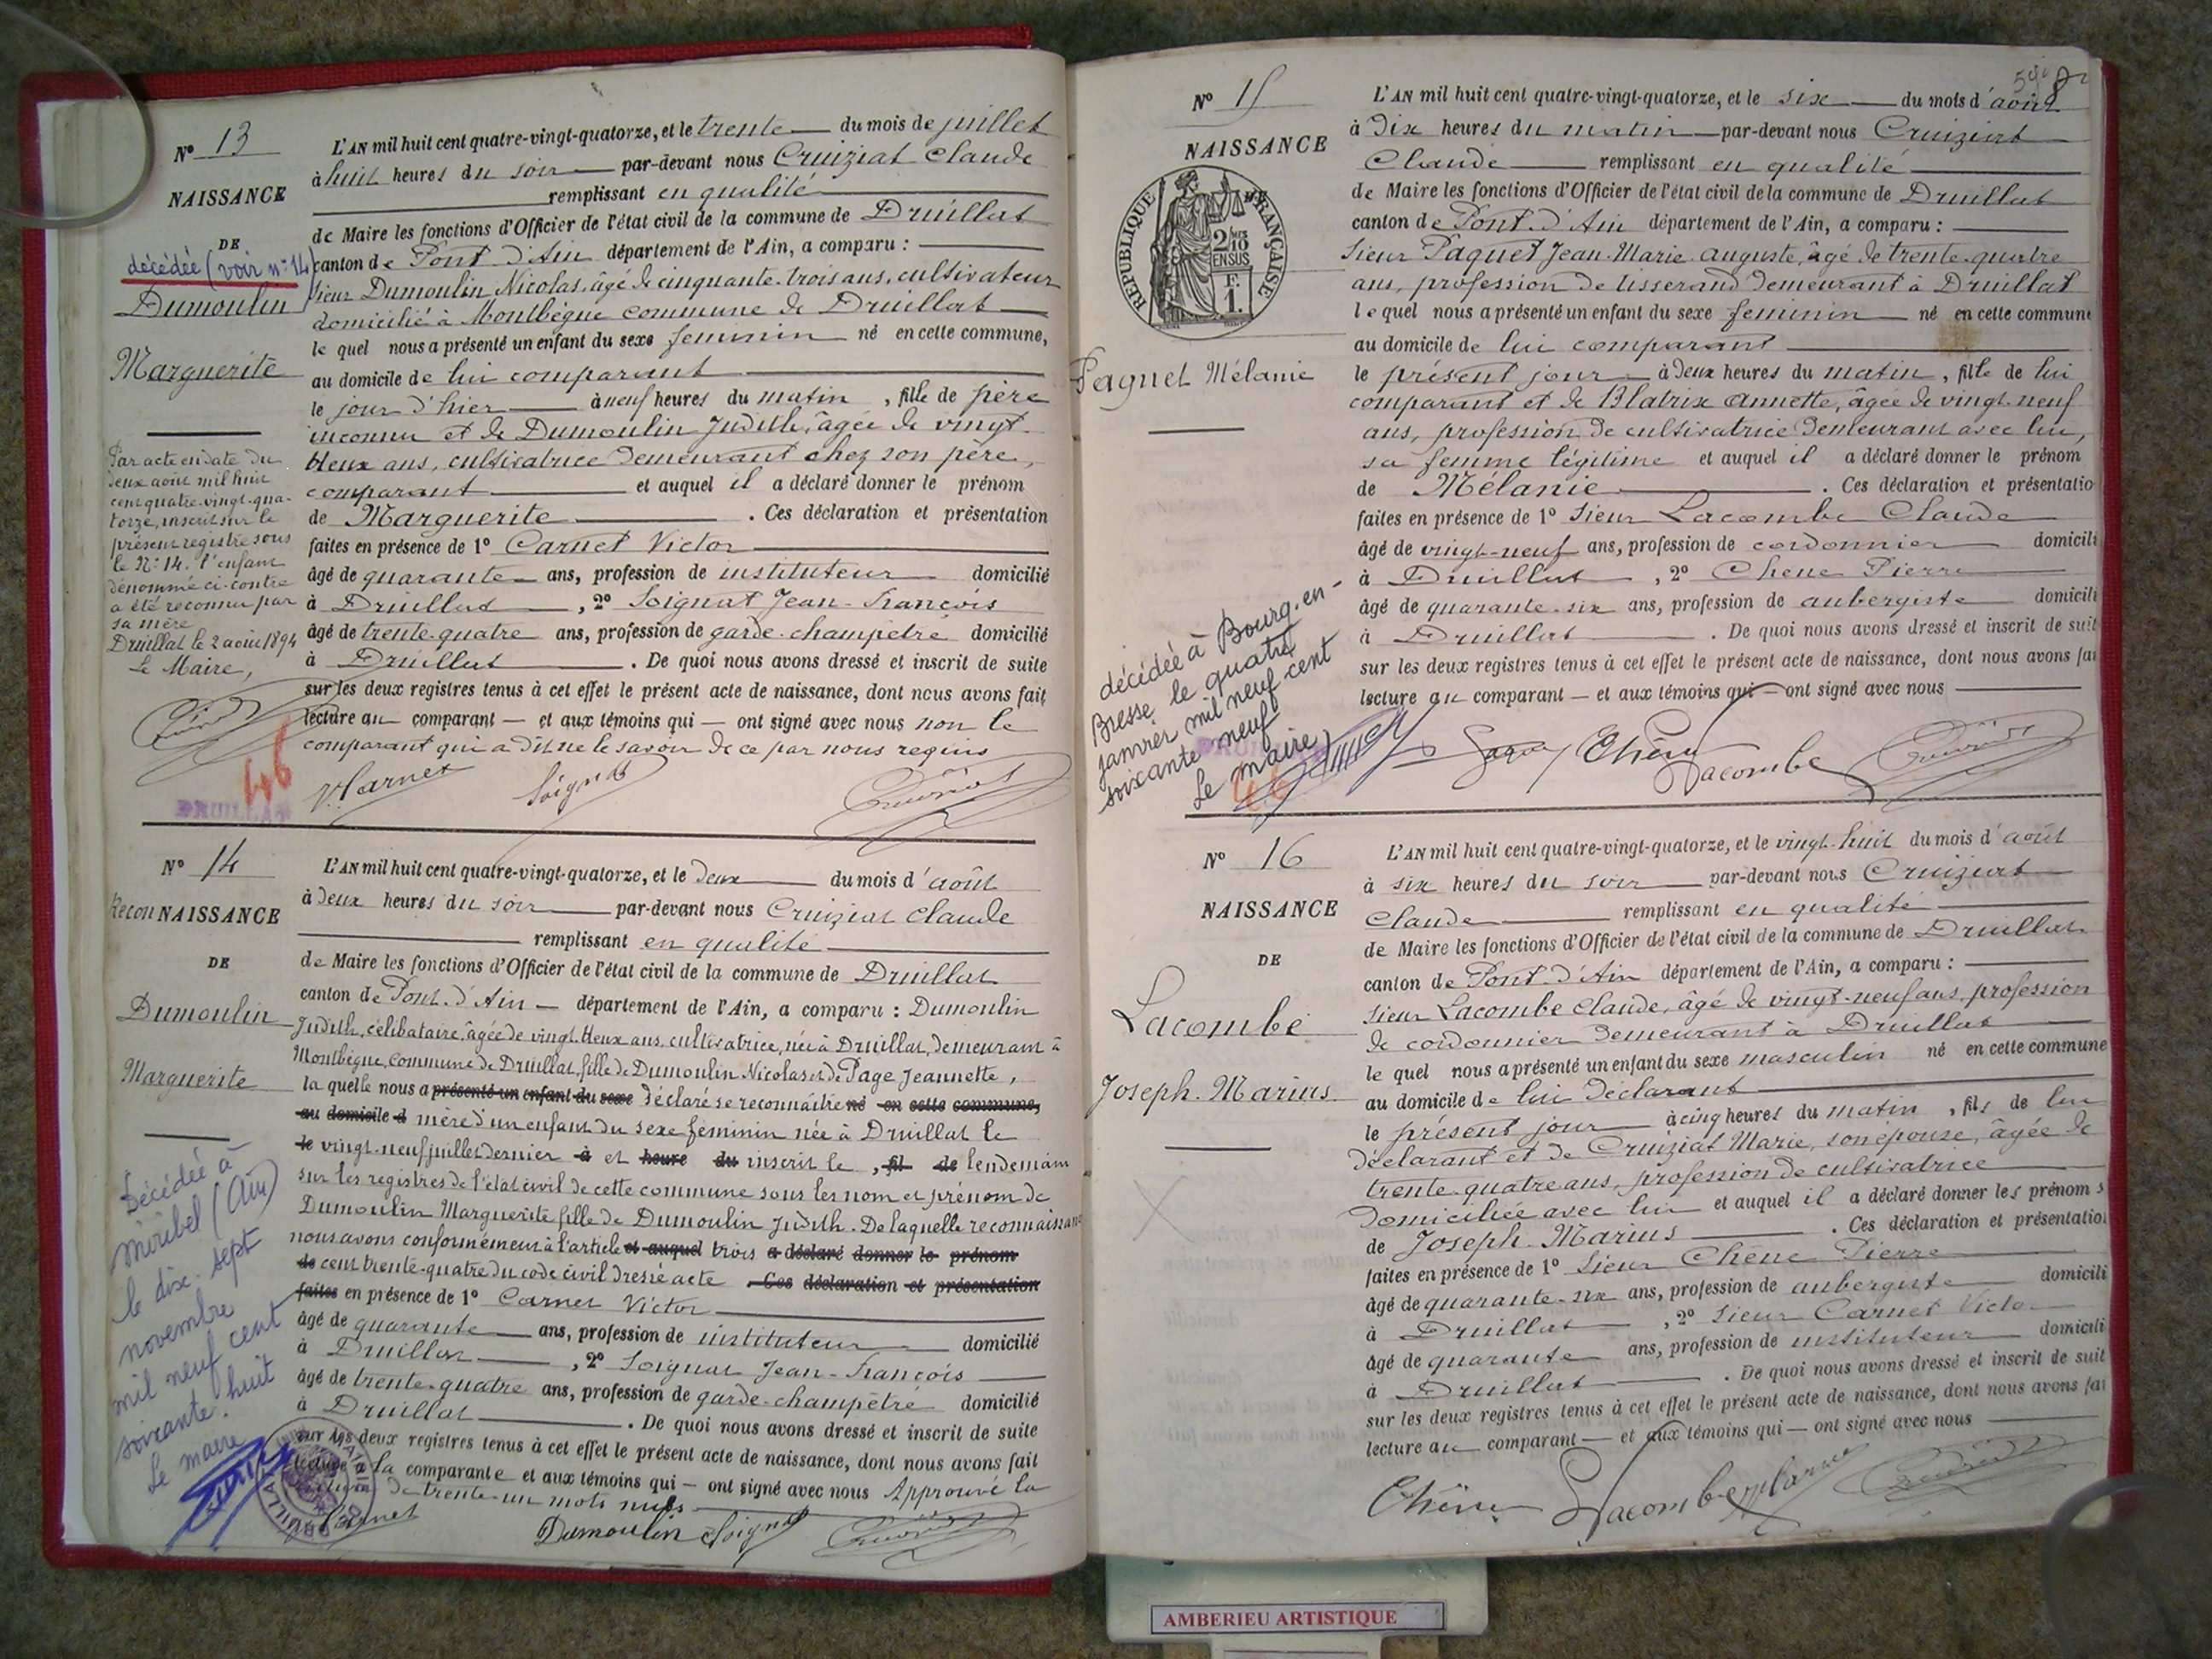 Nº 13
NAISSANCE
DE
décédée (voir nº 14)
Dumoulin
Marguerite
Par acte en date du
deux août mil huit
cent quatre-vingt-qua-
torze, inscrit sur le
présent registre sous
le Nº 14. l'enfant
dénommé ci-contre
a été reconnu par
sa mère
Druillat le 2 août 1894
Le Maire,
46
DRUILLAT
L'AN mil huit cent quatre-vingt-quatorze, et le trente du mois de juillet
à huit heures du soir par-devant nous Cruiziat Claude
remplissant en qualité
de Maire les fonctions d'Officier de l'état civil de la commune de Druillat
canton de Pont d'Ain département de l'Ain, a comparu :
Sieur Dumoulin Nicolas, âgé de cinquante-trois ans, cultivateur
domicilié à Montbègue commune de Druillat
le quel nous a présenté un enfant du sexe feminin né en cette commune,
au domicile de lui comparant
le jour d'hier à neuf heures du matin, fille de père
inconnu et de Dumoulin Judith, âgée de vingt-
deux ans, cultivatrice demeurant chez son père,
comparant et auquel il a déclaré donner le prénom
de Marguerite. Ces déclaration et présentation
faites en présence de 1º Carnet Victor
âgé de quarante ans, profession de instituteur domicilié
à Druillat, 2º Soignat Jean-François
âgé de trente-quatre ans, profession de garde-champêtre domicilié
à Druillat. De quoi nous avons dressé et inscrit de suite
sur les deux registres tenus à cet effet le présent acte de naissance, dont nous avons fait
lecture au comparant — et aux témoins qui — ont signé avec nous non le
comparant qui a dit ne le savoir de ce par nous requis
V. Carnet Soignat Cruiziat
Nº 14
ReconNAISSANCE
DE
Dumoulin
Marguerite
Décédée à
Miribel (Ain)
le dix-sept
novembre
mil neuf cent
soixante-huit
Le maire
L'AN mil huit cent quatre-vingt-quatorze, et le deux du mois d'août
à deux heures du soir par-devant nous Cruiziat Claude
remplissant en qualité
de Maire les fonctions d'Officier de l'état civil de la commune de Druillat
canton de Pont-d'Ain — département de l'Ain, a comparu : Dumoulin
Judith, célibataire, âgée de vingt-deux ans, cultivatrice, née à Druillat, demeurant à
Montbègue, Commune de Druillat, fille de Dumoulin Nicolas et de Page Jeannette,
la quelle nous a présenté un enfant du sexe déclaré se reconnaître né en cette commune,
au domicile d mère d'un enfant du sexe féminin née à Druillat le
le vingt-neuf juillet dernier à et heure du inscrit le , fil de lendemain
sur les registres de l'état civil de cette commune sous les nom et prénom de
Dumoulin Marguerite fille de Dumoulin Judith. De laquelle reconnaissance
nous avons conformément à l'article et auquel trois a déclaré donner le prénom
de cent trente-quatre du code civil dressé acte . Ces déclaration et présentation
faites en présence de 1º Carnet Victor
âgé de quarante ans, profession de instituteur domicilié
à Druillat, 2º Soignat Jean-François
âgé de trente-quatre ans, profession de garde-champêtre domicilié
à Druillat. De quoi nous avons dressé et inscrit de suite
sur les deux registres tenus à cet effet le présent acte de naissance, dont nous avons fait
lecture à la comparante et aux témoins qui — ont signé avec nous Approuvé la
de trente-un mots nuls
Carnet Dumoulin Soignat Cruiziat
Nº 15
NAISSANCE
RÉPUBLIQUE FRANÇAISE
2/10 EN SUS
F. 1.
Paquet Mélanie
décédée à Bourg-en-
Bresse le quatre
janvier mil neuf cent
soixante neuf
Le maire
L'AN mil huit cent quatre-vingt-quatorze, et le six du mois d'août
à dix heures du matin par-devant nous Cruiziat
Claude remplissant en qualité
de Maire les fonctions d'Officier de l'état civil de la commune de Druillat
canton de Pont-d'Ain département de l'Ain, a comparu :
Sieur Paquet Jean-Marie auguste, âgé de trente-quatre
ans, profession de tisserand demeurant à Druillat
le quel nous a présenté un enfant du sexe feminin né en cette commune
au domicile de lui comparant
le présent jour à deux heures du matin, fille de lui
comparant et de Blatrix annette, âgée de vingt-neuf
ans, profession de cultivatrice demeurant avec lui,
sa femme légitime et auquel il a déclaré donner le prénom
de Mélanie. Ces déclaration et présentatio
faites en présence de 1º Sieur Lacombe Claude
âgé de vingt-neuf ans, profession de cordonnier domicili
à Druillat, 2º Chene Pierre
âgé de quarante-six ans, profession de aubergiste domicili
à Druillat. De quoi nous avons dressé et inscrit de suit
sur les deux registres tenus à cet effet le présent acte de naissance, dont nous avons fai
lecture au comparant — et aux témoins qui — ont signé avec nous
Chêne Lacombe Cruiziat
Nº 16
NAISSANCE
DE
Lacombe
Joseph-Marius
L'AN mil huit cent quatre-vingt-quatorze, et le vingt-huit du mois d'août
à six heures du soir par-devant nous Cruiziat
Claude remplissant en qualité
de Maire les fonctions d'Officier de l'état civil de la commune de Druillat
canton de Pont-d'Ain département de l'Ain, a comparu :
Sieur Lacombe Claude, âgé de vingt-neuf ans, profession
de cordonnier demeurant à Druillat
le quel nous a présenté un enfant du sexe masculin né en cette commune
au domicile de lui déclarant
le présent jour à cinq heures du matin, fils de lui
déclarant et de Cruiziat Marie, son épouse, âgée de
trente-quatre ans, profession de cultivatrice
domiciliée avec lui et auquel il a déclaré donner les prénoms
de Joseph-Marius. Ces déclaration et présentatio
faites en présence de 1º Sieur Chene Pierre
âgé de quarante-six ans, profession de aubergiste domicili
à Druillat, 2º Sieur Carnet Victor
âgé de quarante ans, profession de instituteur domicili
à Druillat. De quoi nous avons dressé et inscrit de suit
sur les deux registres tenus à cet effet le présent acte de naissance, dont nous avons fai
lecture au comparant — et aux témoins qui — ont signé avec nous
Chêne Lacombe V. Carnet Cruiziat
AMBERIEU ARTISTIQUE